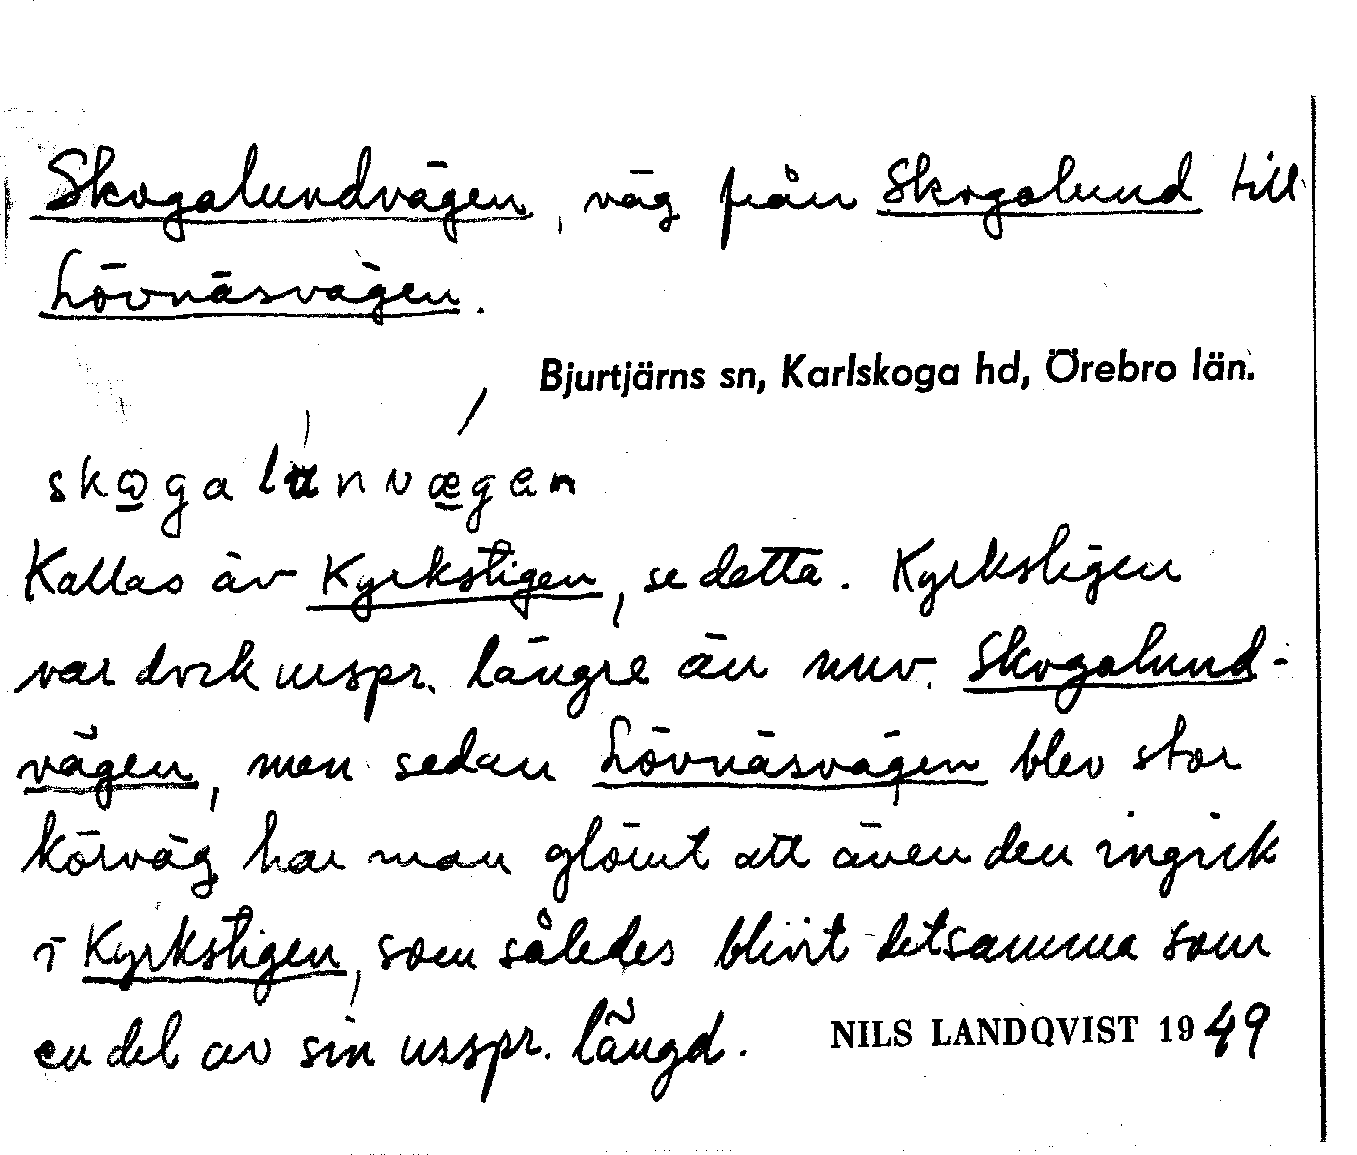 Skogalundvägen, väg från Skogalund till
Lövnäsvägen.
Bjurtjärns sn, Karlskoga hd, Örebro län.
skωgalunvægan
Kallas äv Kyrkstigen, se detta. Kyrkstigen
var dock urspr. längre än nuv. Skogalund-
vägen, men sedan Lövnäsvägen blev stor
körväg har man glömt att även den ingick
i Kyrkstigen, som således blivit detsamma som
en del av sin urspr. längd.
NILS LANDQVIST 1949